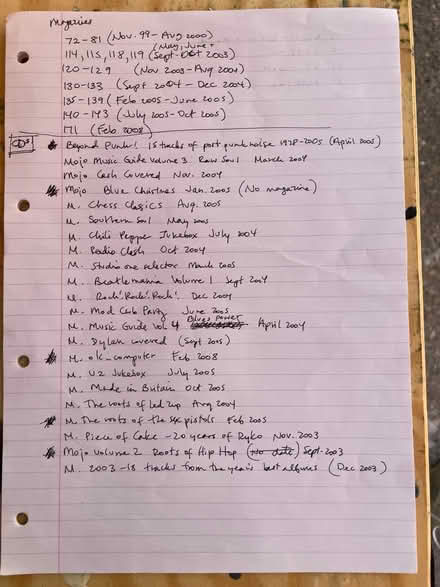 Magazines
72-81 (Nov. 99 - Aug 2000)
(May, June +
114, 115, 118, 119 (Sept-Oct 2003)
120-129 (Nov 2003 - Aug 2004)
130-133 (Sept 2004 - Dec 2004)
135-139 (Feb 2005 - June 2005)
140-143 (July 2005 - Oct 2005)
171 (Feb 2008)
CDs
Beyond Punk! 15 tracks of post punk noise 1978-2005 (April 2005)
Mojo Music Guide Volume 3 Raw Soul March 2004
Mojo Cash Covered Nov. 2004
Mojo Blue Christmas Jan. 2005 (No magazine)
M. Chess Classics Aug. 2005
M. Southern Soul May 2005
M. Chili Pepper Jukebox July 2004
M. Radio Clash Oct 2004
M. Studio one selector March 2005
M. Beatlemania Volume 1 Sept 2004
M. Rock! Rock! Rock! Dec 2004
M. Mod Club Party June 2005
M. Music Guide Vol 4 Blues power April 2004
M. Dylan covered (Sept 2005)
M. ok_computer Feb 2008
M. U2 Jukebox July 2005
M. Made in Britain Oct 2005
M. The roots of Led Zep Aug 2004
M. The roots of the sex pistols Feb 2005
M. Piece of Cake - 20 years of Ryko Nov. 2003
Mojo Volume 2 Roots of Hip Hop (no date) Sept. 2003
M. 2003 - 18 tracks from the year's best albums (Dec 2003)